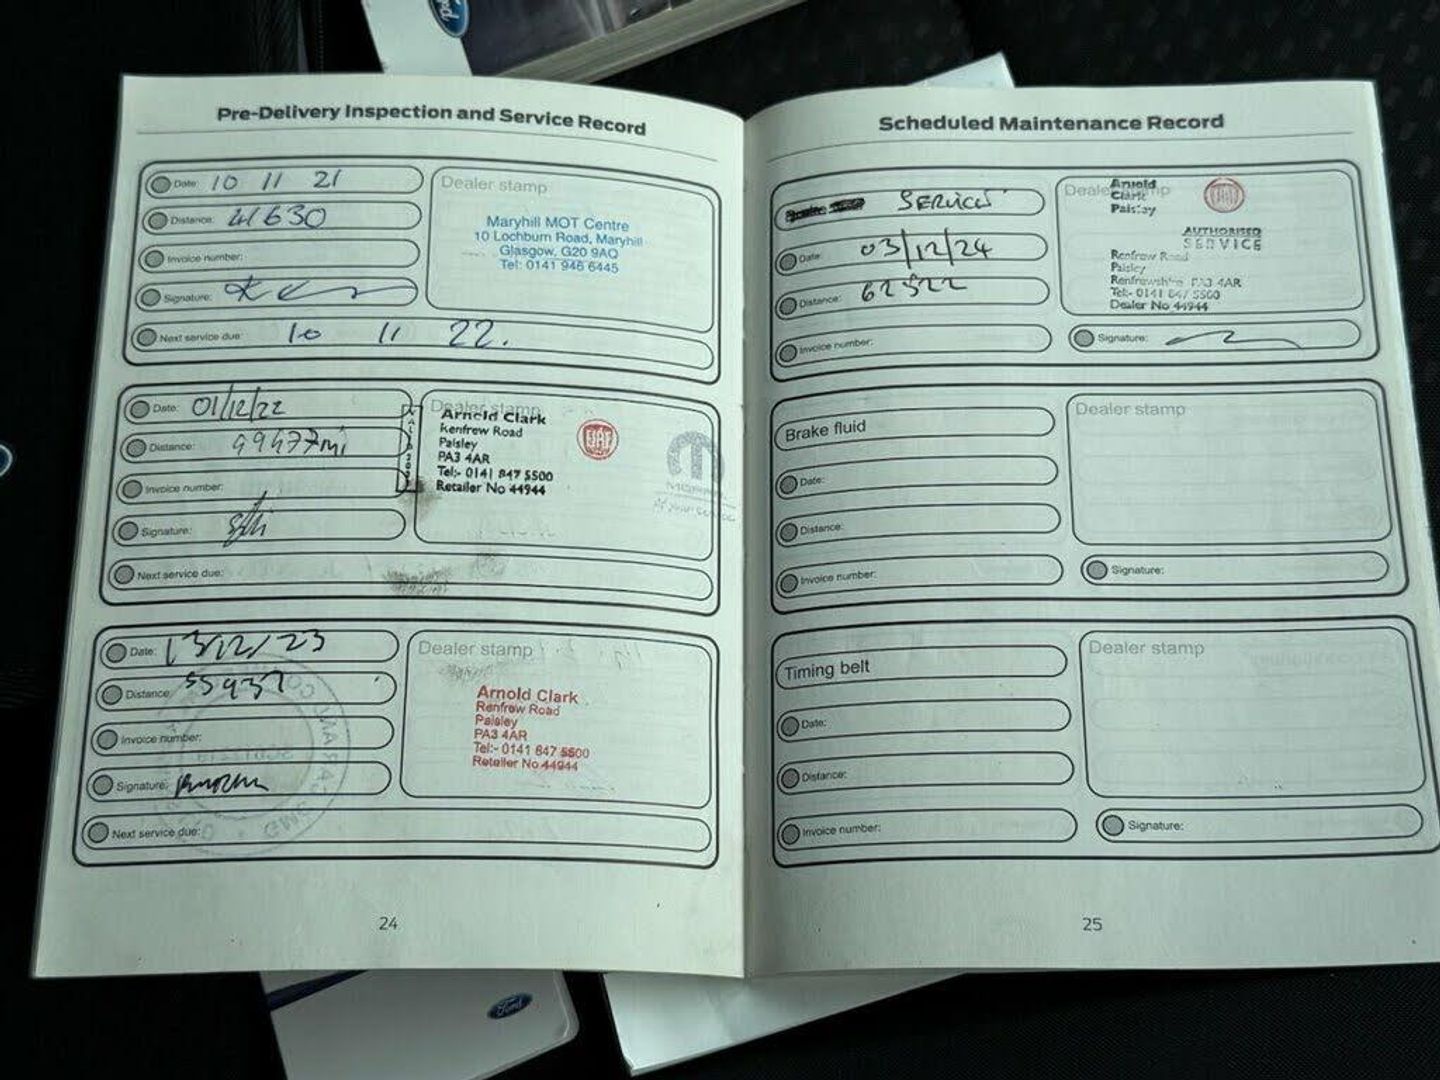 Ford
Pre-Delivery Inspection and Service Record
Date: 10 11 21
Distance: 41630
Invoice number:
Signature:
Next service due: 10 11 22.
Dealer stamp
Maryhill MOT Centre
10 Lochburn Road, Maryhill
Glasgow, G20 9AQ
Tel: 0141 946 6445
Date: 01/12/22
Distance: 49477mi
Invoice number:
Signature:
Next service due:
Dealer stamp
Arnold Clark
Renfrew Road
Paisley
PA3 4AR
Tel:- 0141 847 5500
Retailer No 44944
FIAT
MOPAR
At your service
Date: 13/12/23
Distance: 55937
Invoice number:
Signature:
Next service due:
Dealer stamp
Arnold Clark
Renfrew Road
Paisley
PA3 4AR
Tel:- 0141 847 5500
Retailer No 44944
24
Scheduled Maintenance Record
SERVICE
Date: 03/12/24
Distance: 62522
Invoice number:
Dealer stamp
Arnold
Clark
Paisley
FIAT
AUTHORISED
SERVICE
Renfrew Road
Paisley
Renfrewshire PA3 4AR
Tel:- 0141 847 5500
Dealer No 44944
Signature:
Brake fluid
Date:
Distance:
Invoice number:
Dealer stamp
Signature:
Timing belt
Date:
Distance:
Invoice number:
Dealer stamp
Signature:
25
Ford